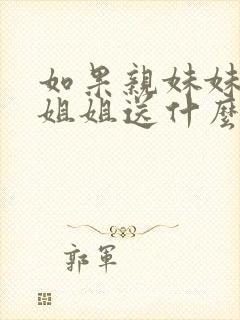 如果親妹妹
姐姐送什麼
郭軍